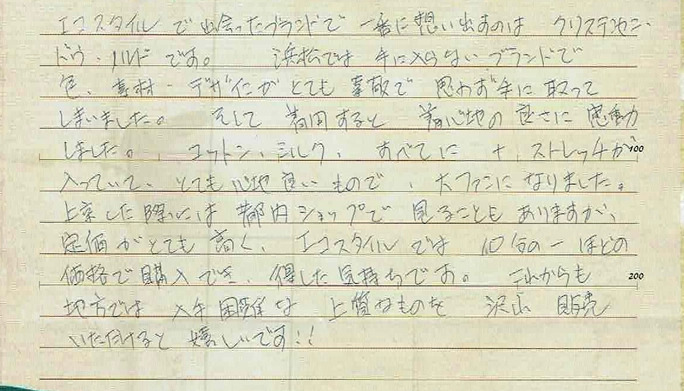 エコスタイルで出会ったブランドで一番に想い出すのは クリステンセン・
ドゥ・ノルドです。 浜松では手に入らないブランドで
色、素材・デザインがとても素敵で 思わず手に取って
しまいました。 そして 着用すると 着心地の良さに感動
しました。 コットン、シルク、すべてに + ストレッチが 100
入っていて、とても心地良いもので、大ファンになりました。
上京した際には都内ショップで見ることもありますが、
定価がとても高く、エコスタイルでは 10分の一ほどの
価格で購入でき、得した気持ちです。 これからも 200
地方では 入手困難な 上質なものを 沢山 販売
いただけると嬉しいです!!